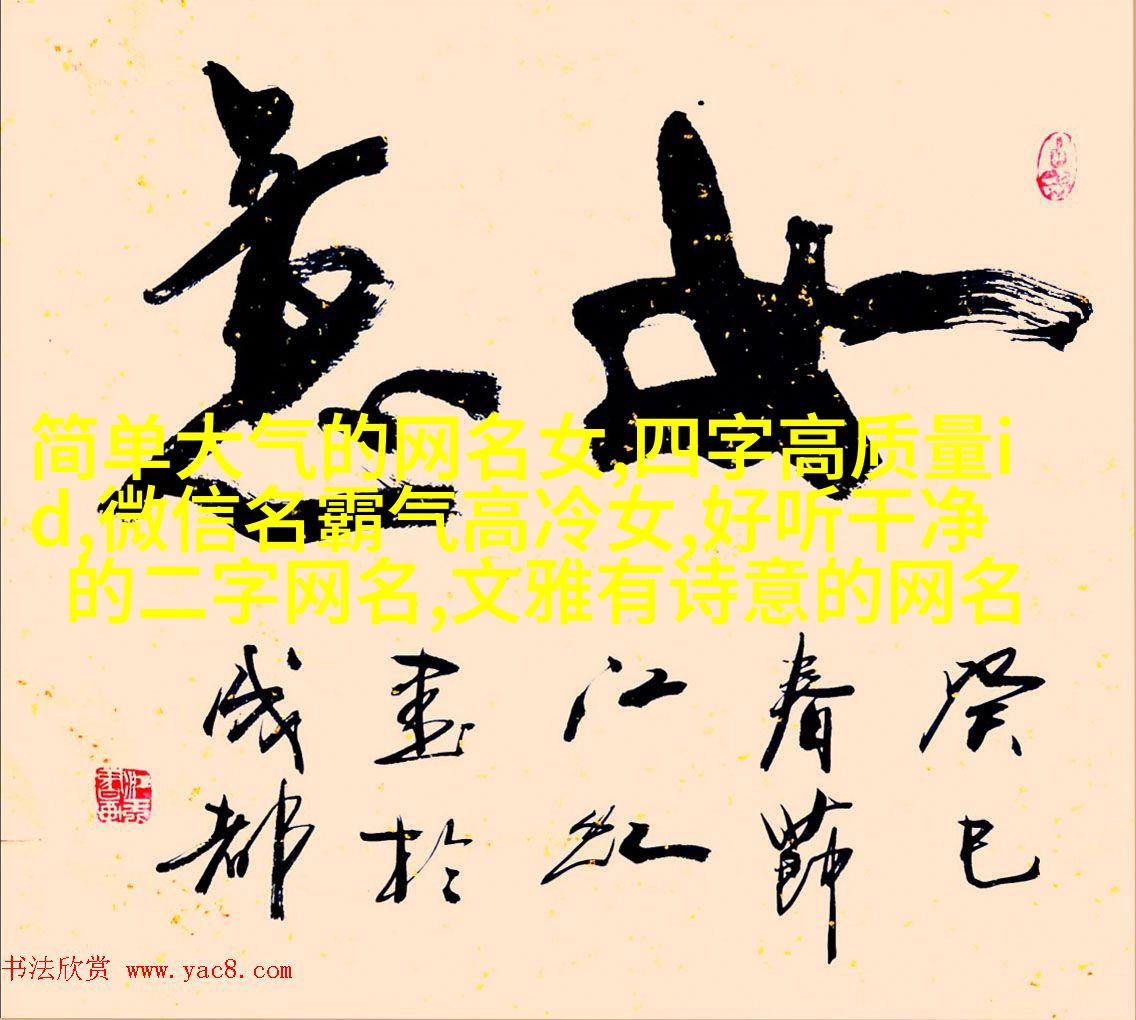 如意
简单大气的网名女,四字高质量i
d,微信名霸气高冷女,好听干净
的二字网名,文雅有诗意的网名
癸巳
春節
江红
書於
成都
书法欣赏 www.yac8.com